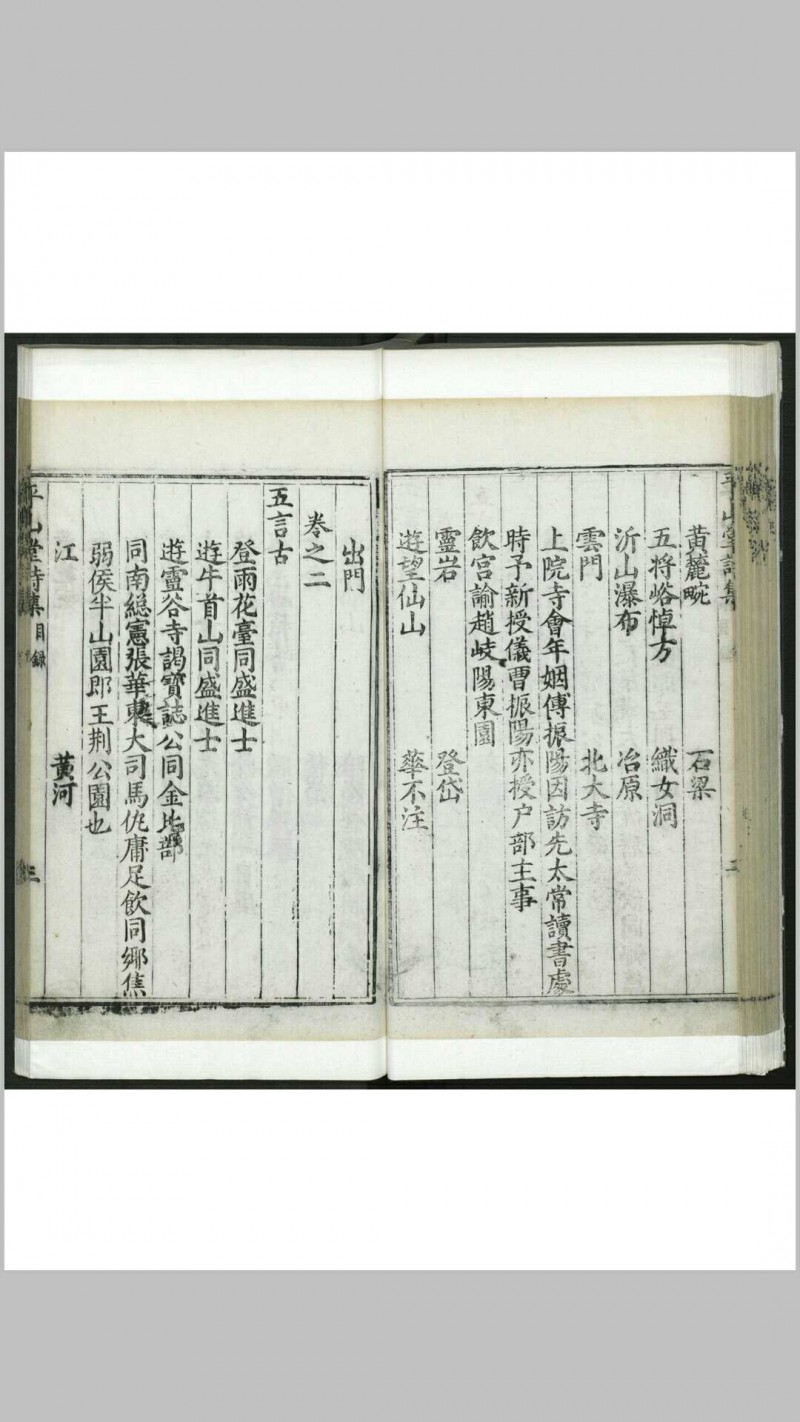 黃麓畹 石梁
五將峪悼方 織女洞
沂山瀑布 冶原
雲門 北大寺
上院寺會年姻傅振陽因訪先太常讀書處
時予新授儀曹振陽亦授户部主事
飲宫諭趙岐陽東園
靈岩 登岱
遊望仙山 華不注
出門
卷之二
五言古
登雨花臺同盛進士
遊牛首山同盛進士
遊靈谷寺謁寶誌公同金比部
同南總憲張華東大司馬仇庸足飲同鄉焦
弱侯半山園即王荆公園也
江 黃河
平山堂詩集 目錄 三